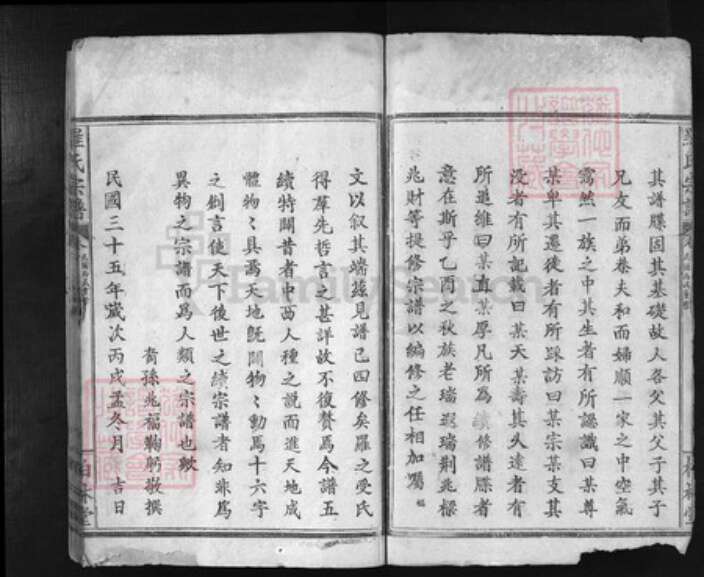 其譜牒固其基礎故人各父其父子其子
兄友而弟恭夫和而婦順一家之中空氣
靄然一族之中其生者有所認識曰某尊
某卑其遷徙者有所踩訪曰某宗某支其
没者有所記載曰某天某壽其久遠者有
所追維曰某直某厚凡所為續修譜牒者
意在斯乎乙酉之秋族老瑞遐瑞荆兆樑
兆財等提修宗譜以編修之任相加屬
文以叙其端緣見譜已四修矣羅之受氏
得羣先哲言之甚詳故不復贅焉今譜五
續特闢昔者中西人種之説而進天地成
體物〻具焉天地既闢物〻動焉十六字
之創言使天下後世之續宗譜者知非為
異物之宗譜而為人類之宗譜也歟
裔孫兆福鞠躬敬撰
民國三十五年歲次丙戌孟冬月 吉日
羅氏宗譜
FamilySearch